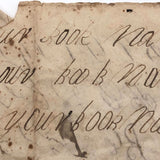 your book Na
your book Na
your book Na